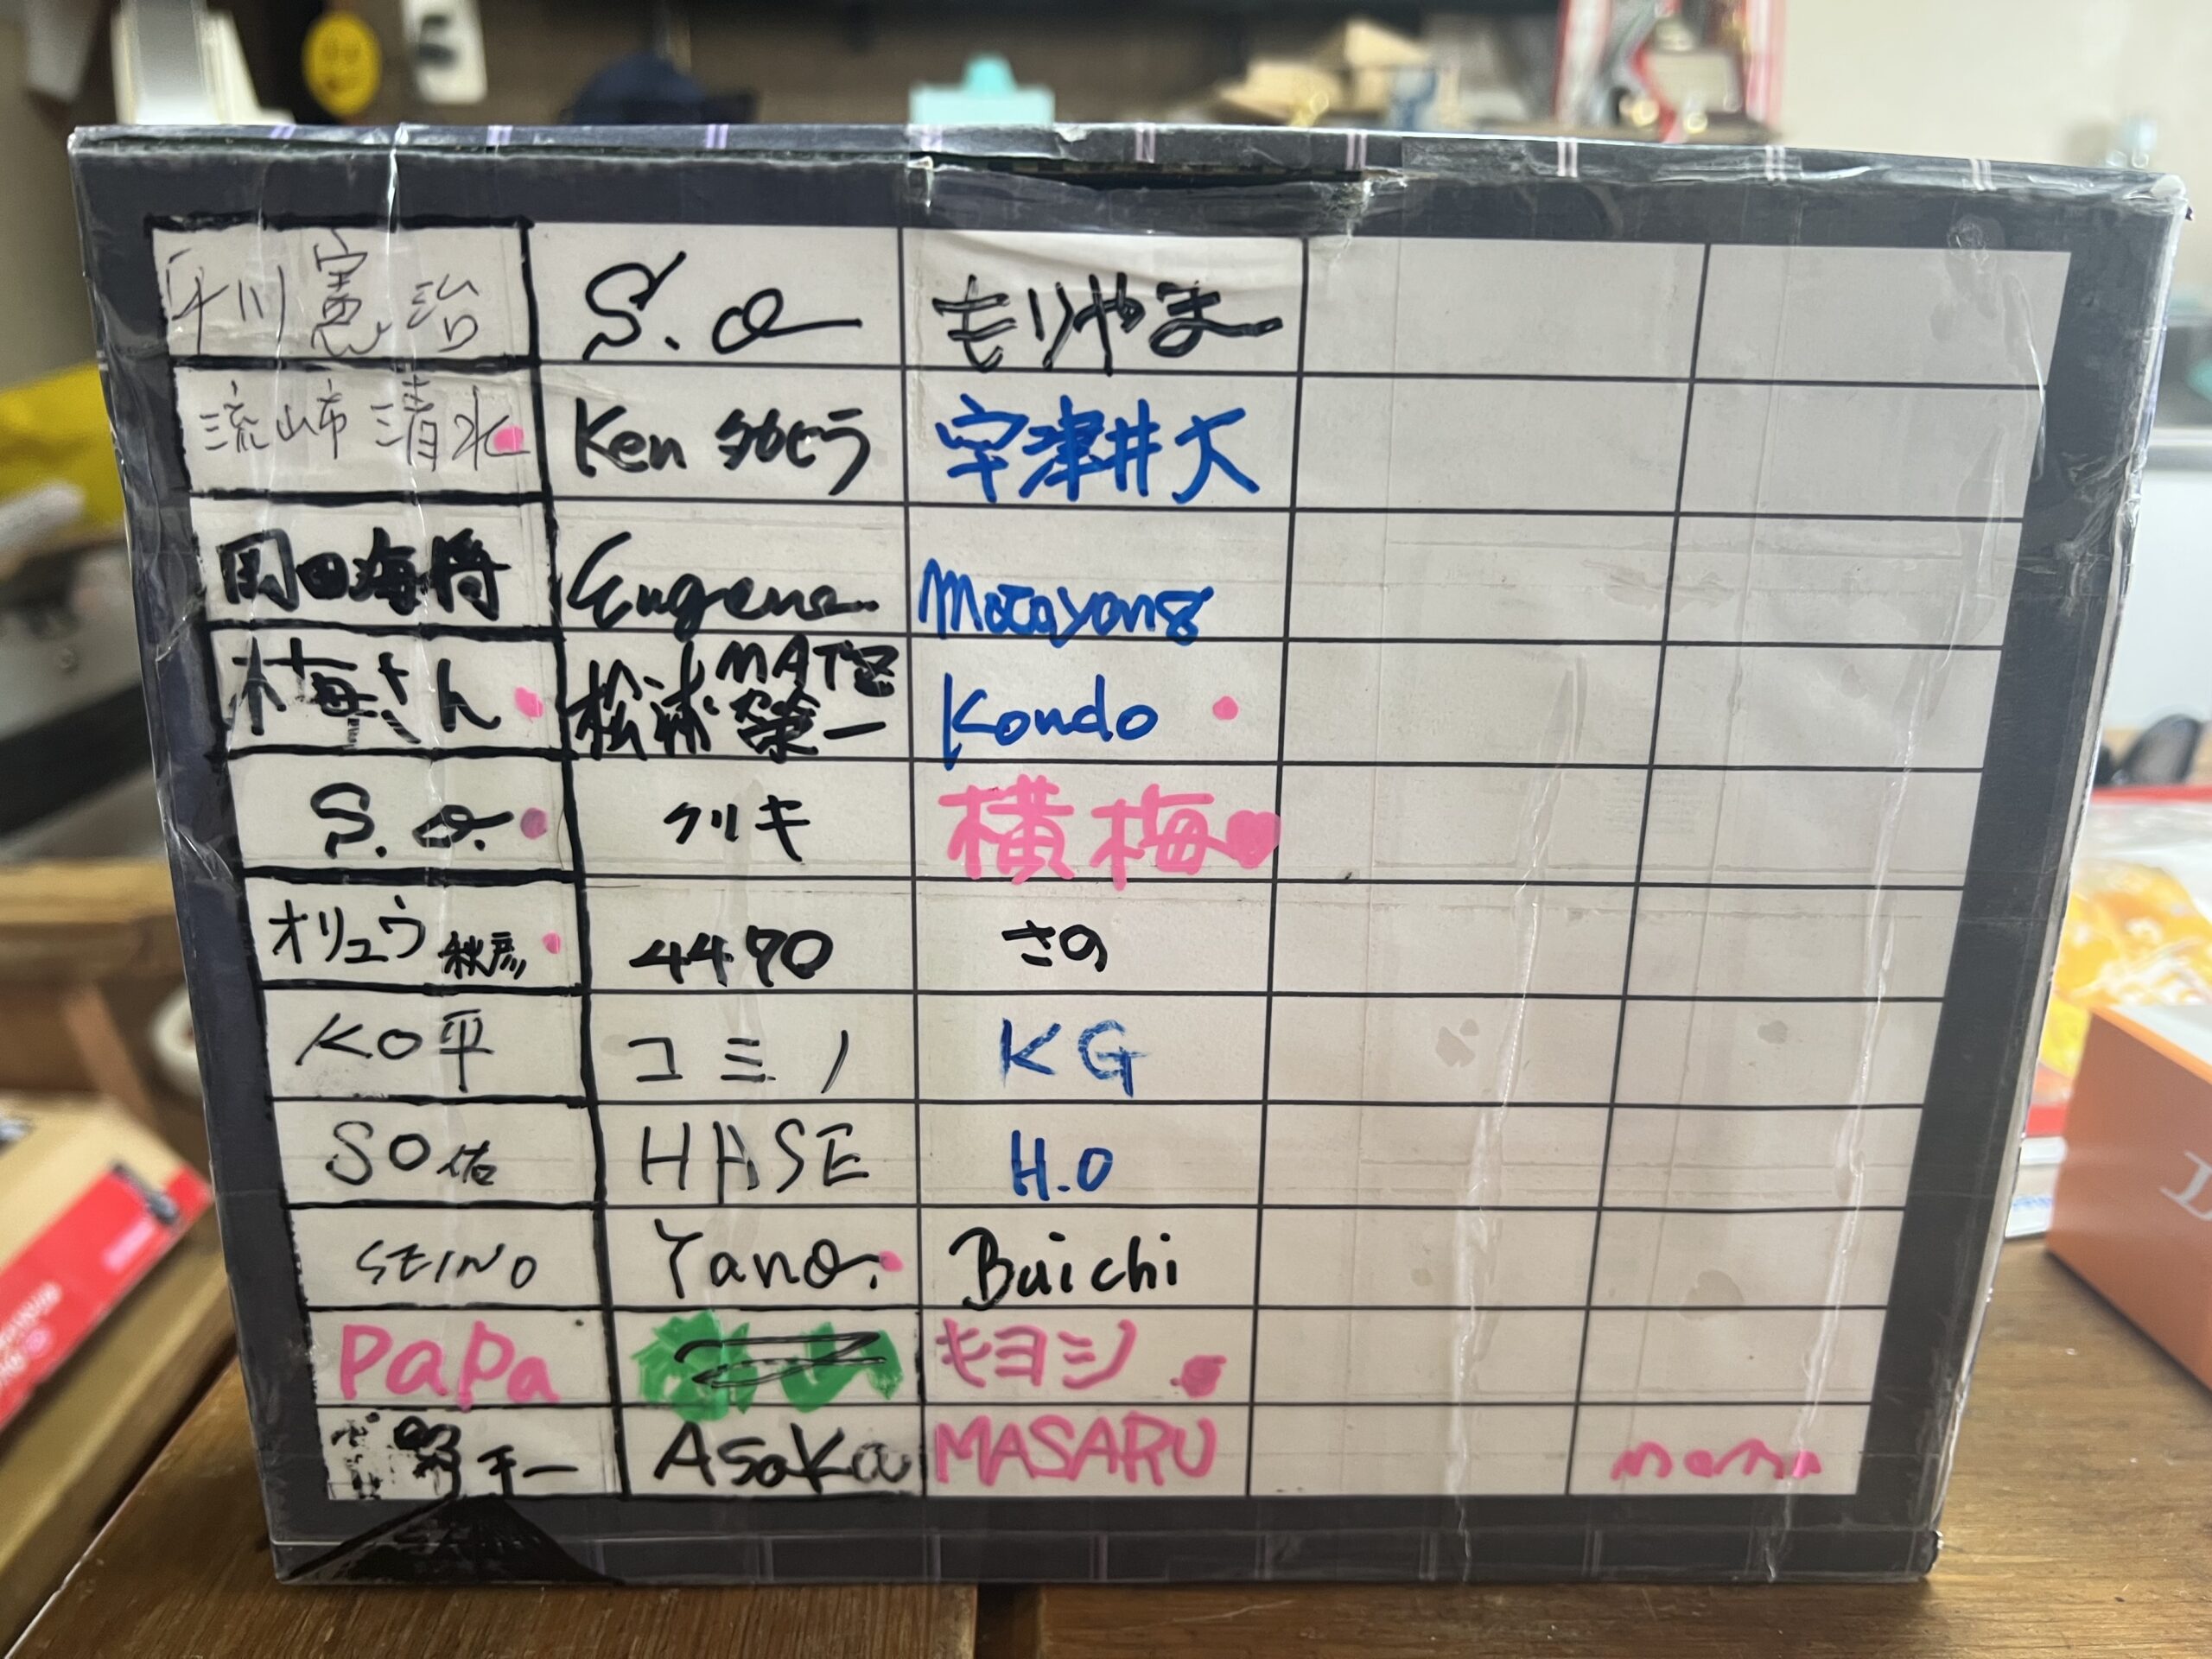 川憲治 S. a もりやま
流山市 清水 Ken タカヒラ 宇津井大
岡田海将 Eugene Motoyong
梅さん 松浦 MATZ 榮一 Kondo
S. a. クリキ 横梅
オリュウ 秋彦 4470 さの
KO平 コミノ KG
SO佑 HASE H.O
SEINO Yano. Baichi
PaPa キヨシ
Asaka MASARU mama